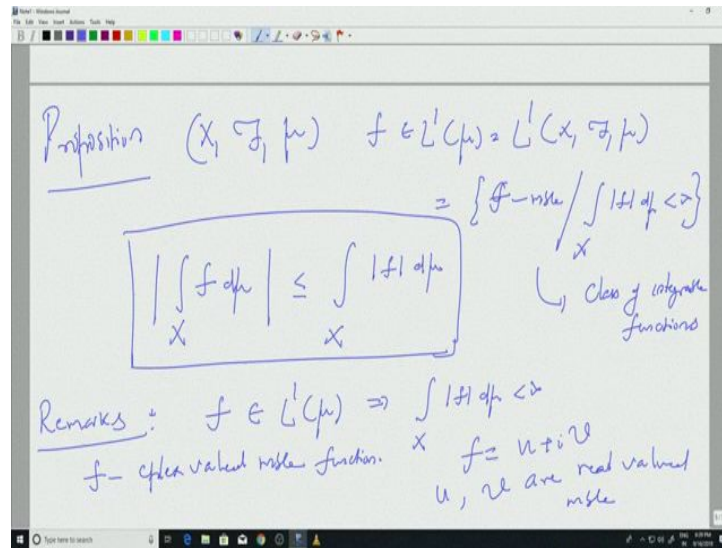 Note1 - Windows Journal
File Edit View Insert Actions Tools Help
Proposition (X, F, μ) f ∈ L¹(μ) = L¹(X, F, μ)
= { f - mble / ∫_X |f| dμ < ∞ }
↳ Class of integrable functions
| ∫_X f dμ | ≤ ∫_X |f| dμ
Remarks : f ∈ L¹(μ) ⇒ ∫_X |f| dμ < ∞
f - cplex valued mble function. f = u + i v
u, v are real valued
mble
Type here to search